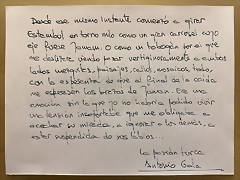 Desde ese mismo instante comenzó a girar
Estambul en torno mío como un gran carrusel cuyo
eje fuese Yamam. O como un tobogán por el que
me deslizara, viendo pasar vertiginosamente a ambos
lados mezquitas, paisajes, cielos, mosaicos, todo,
con la espera de que al final de la caída
me esperasen los brazos de Yamam. Era una
emoción sin la que yo no habría podido vivir
una tensión insoportable que me obligaba a
acechar su mirada, a ignorar a los demás, a
estar suspendida de sus labios...
La pasión turca
Antonio Gala